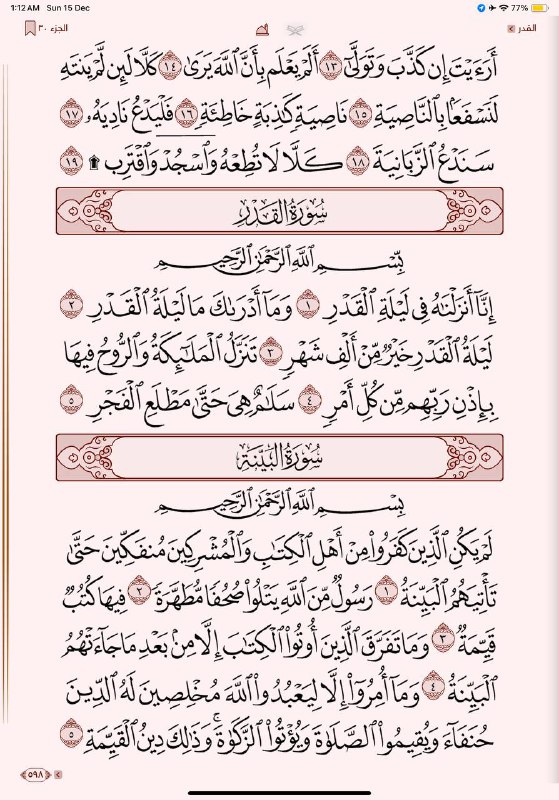 1:12 AM Sun 15 Dec 77%
القدر الجزء ٣٠
أَرَءَيْتَ إِن كَذَّبَ وَتَوَلَّىٰٓ ١٣ أَلَمْ يَعْلَم بِأَنَّ ٱللَّهَ يَرَىٰ ١٤ كَلَّا لَئِن لَّمْ يَنتَهِ
لَنَسْفَعًۢا بِٱلنَّاصِيَةِ ١٥ نَاصِيَةٍ كَٰذِبَةٍ خَاطِئَةٍ ١٦ فَلْيَدْعُ نَادِيَهُۥ ١٧
سَنَدْعُ ٱلزَّبَانِيَةَ ١٨ كَلَّا لَا تُطِعْهُ وَٱسْجُدْ وَٱقْتَرِب ۩ ١٩
سُورَةُ القَدْرِ
بِسْمِ ٱللَّهِ ٱلرَّحْمَٰنِ ٱلرَّحِيمِ
إِنَّآ أَنزَلْنَٰهُ فِى لَيْلَةِ ٱلْقَدْرِ ١ وَمَآ أَدْرَىٰكَ مَا لَيْلَةُ ٱلْقَدْرِ ٢
لَيْلَةُ ٱلْقَدْرِ خَيْرٌ مِّنْ أَلْفِ شَهْرٍ ٣ تَنَزَّلُ ٱلْمَلَٰٓئِكَةُ وَٱلرُّوحُ فِيهَا
بِإِذْنِ رَبِّهِم مِّن كُلِّ أَمْرٍ ٤ سَلَٰمٌ هِىَ حَتَّىٰ مَطْلَعِ ٱلْفَجْرِ ٥
سُورَةُ البَيِّنَةِ
بِسْمِ ٱللَّهِ ٱلرَّحْمَٰنِ ٱلرَّحِيمِ
لَمْ يَكُنِ ٱلَّذِينَ كَفَرُوا۟ مِنْ أَهْلِ ٱلْكِتَٰبِ وَٱلْمُشْرِكِينَ مُنفَكِّينَ حَتَّىٰ
تَأْتِيَهُمُ ٱلْبَيِّنَةُ ١ رَسُولٌ مِّنَ ٱللَّهِ يَتْلُوا۟ صُحُفًا مُّطَهَّرَةً ٢ فِيهَا كُتُبٌ
قَيِّمَةٌ ٣ وَمَا تَفَرَّقَ ٱلَّذِينَ أُوتُوا۟ ٱلْكِتَٰبَ إِلَّا مِنۢ بَعْدِ مَا جَآءَتْهُمُ
ٱلْبَيِّنَةُ ٤ وَمَآ أُمِرُوٓا۟ إِلَّا لِيَعْبُدُوا۟ ٱللَّهَ مُخْلِصِينَ لَهُ ٱلدِّينَ
حُنَفَآءَ وَيُقِيمُوا۟ ٱلصَّلَوٰةَ وَيُؤْتُوا۟ ٱلزَّكَوٰةَ ۚ وَذَٰلِكَ دِينُ ٱلْقَيِّمَةِ ٥
٥٩٨